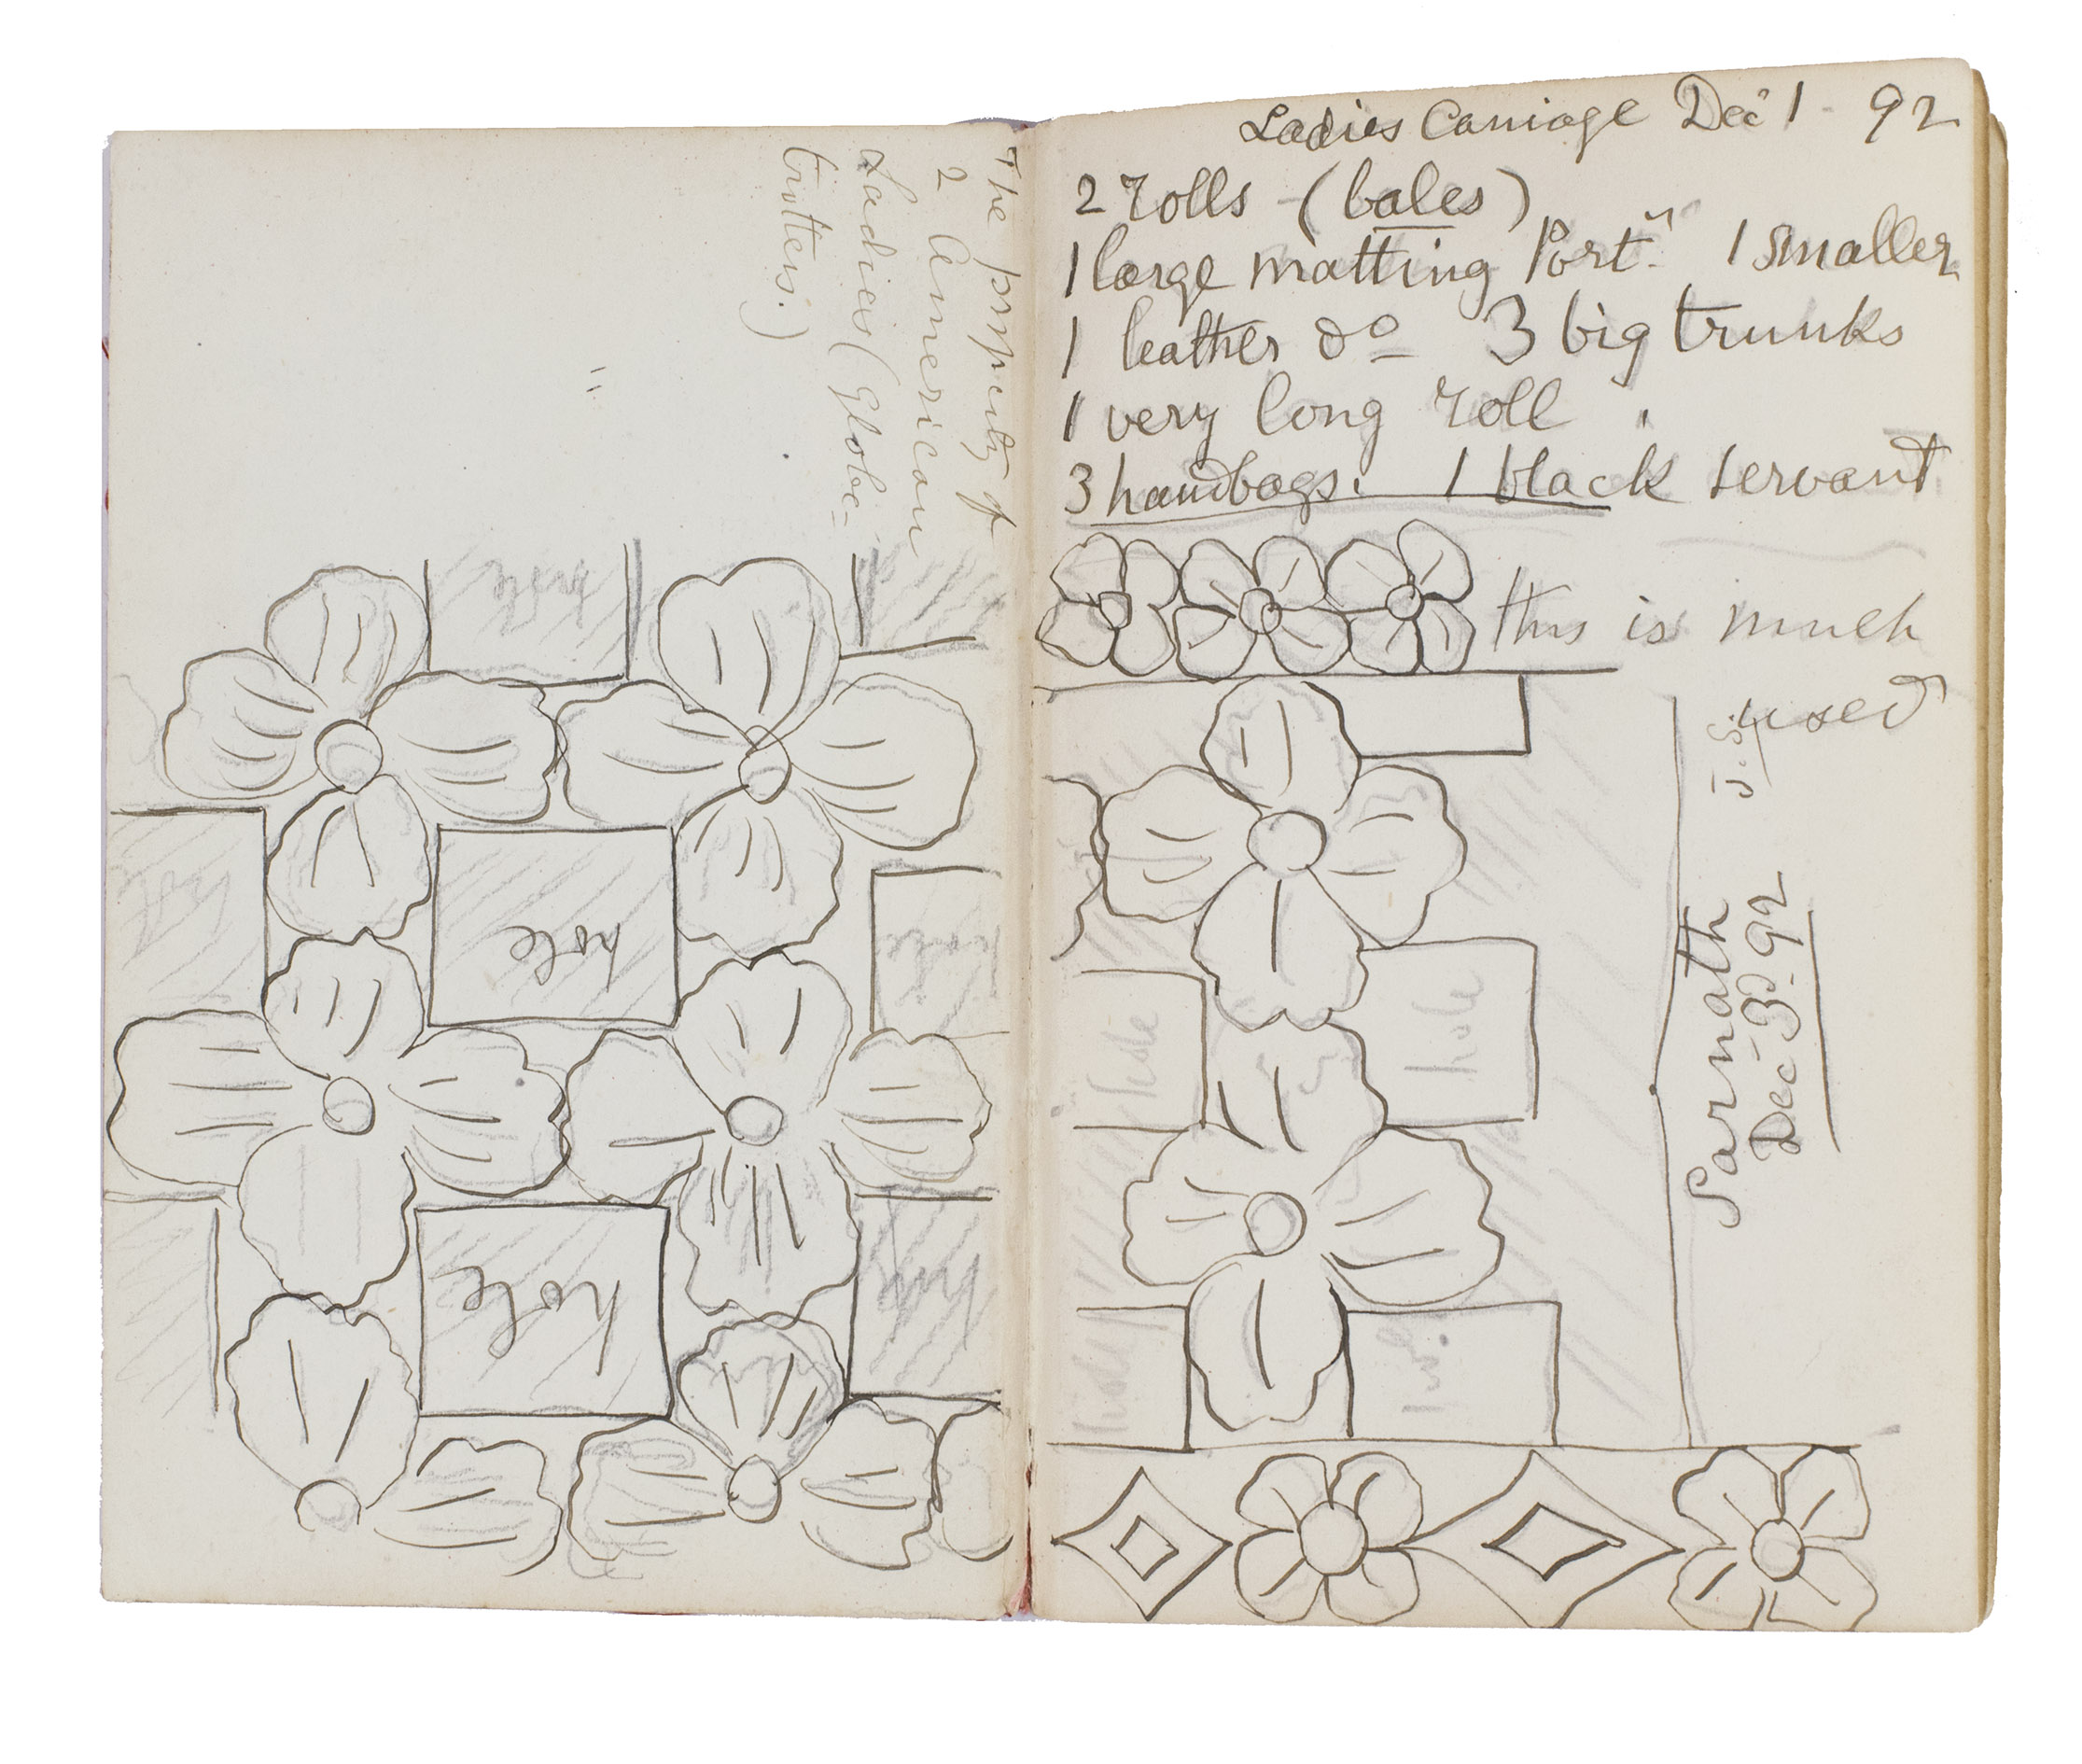 The property of
2 American
Ladies (Globe-
trotters.)
hole
hole
hole
hole
Ladies Carriage Dec 1 - 92
2 rolls - (bales)
1 large matting Port. 1 smaller
1 leather do 3 big trunks
1 very long roll
3 handbags. 1 black servant
this is much
used
J.S.
Sarnath
Dec 3d. 92
hole
hole
hole